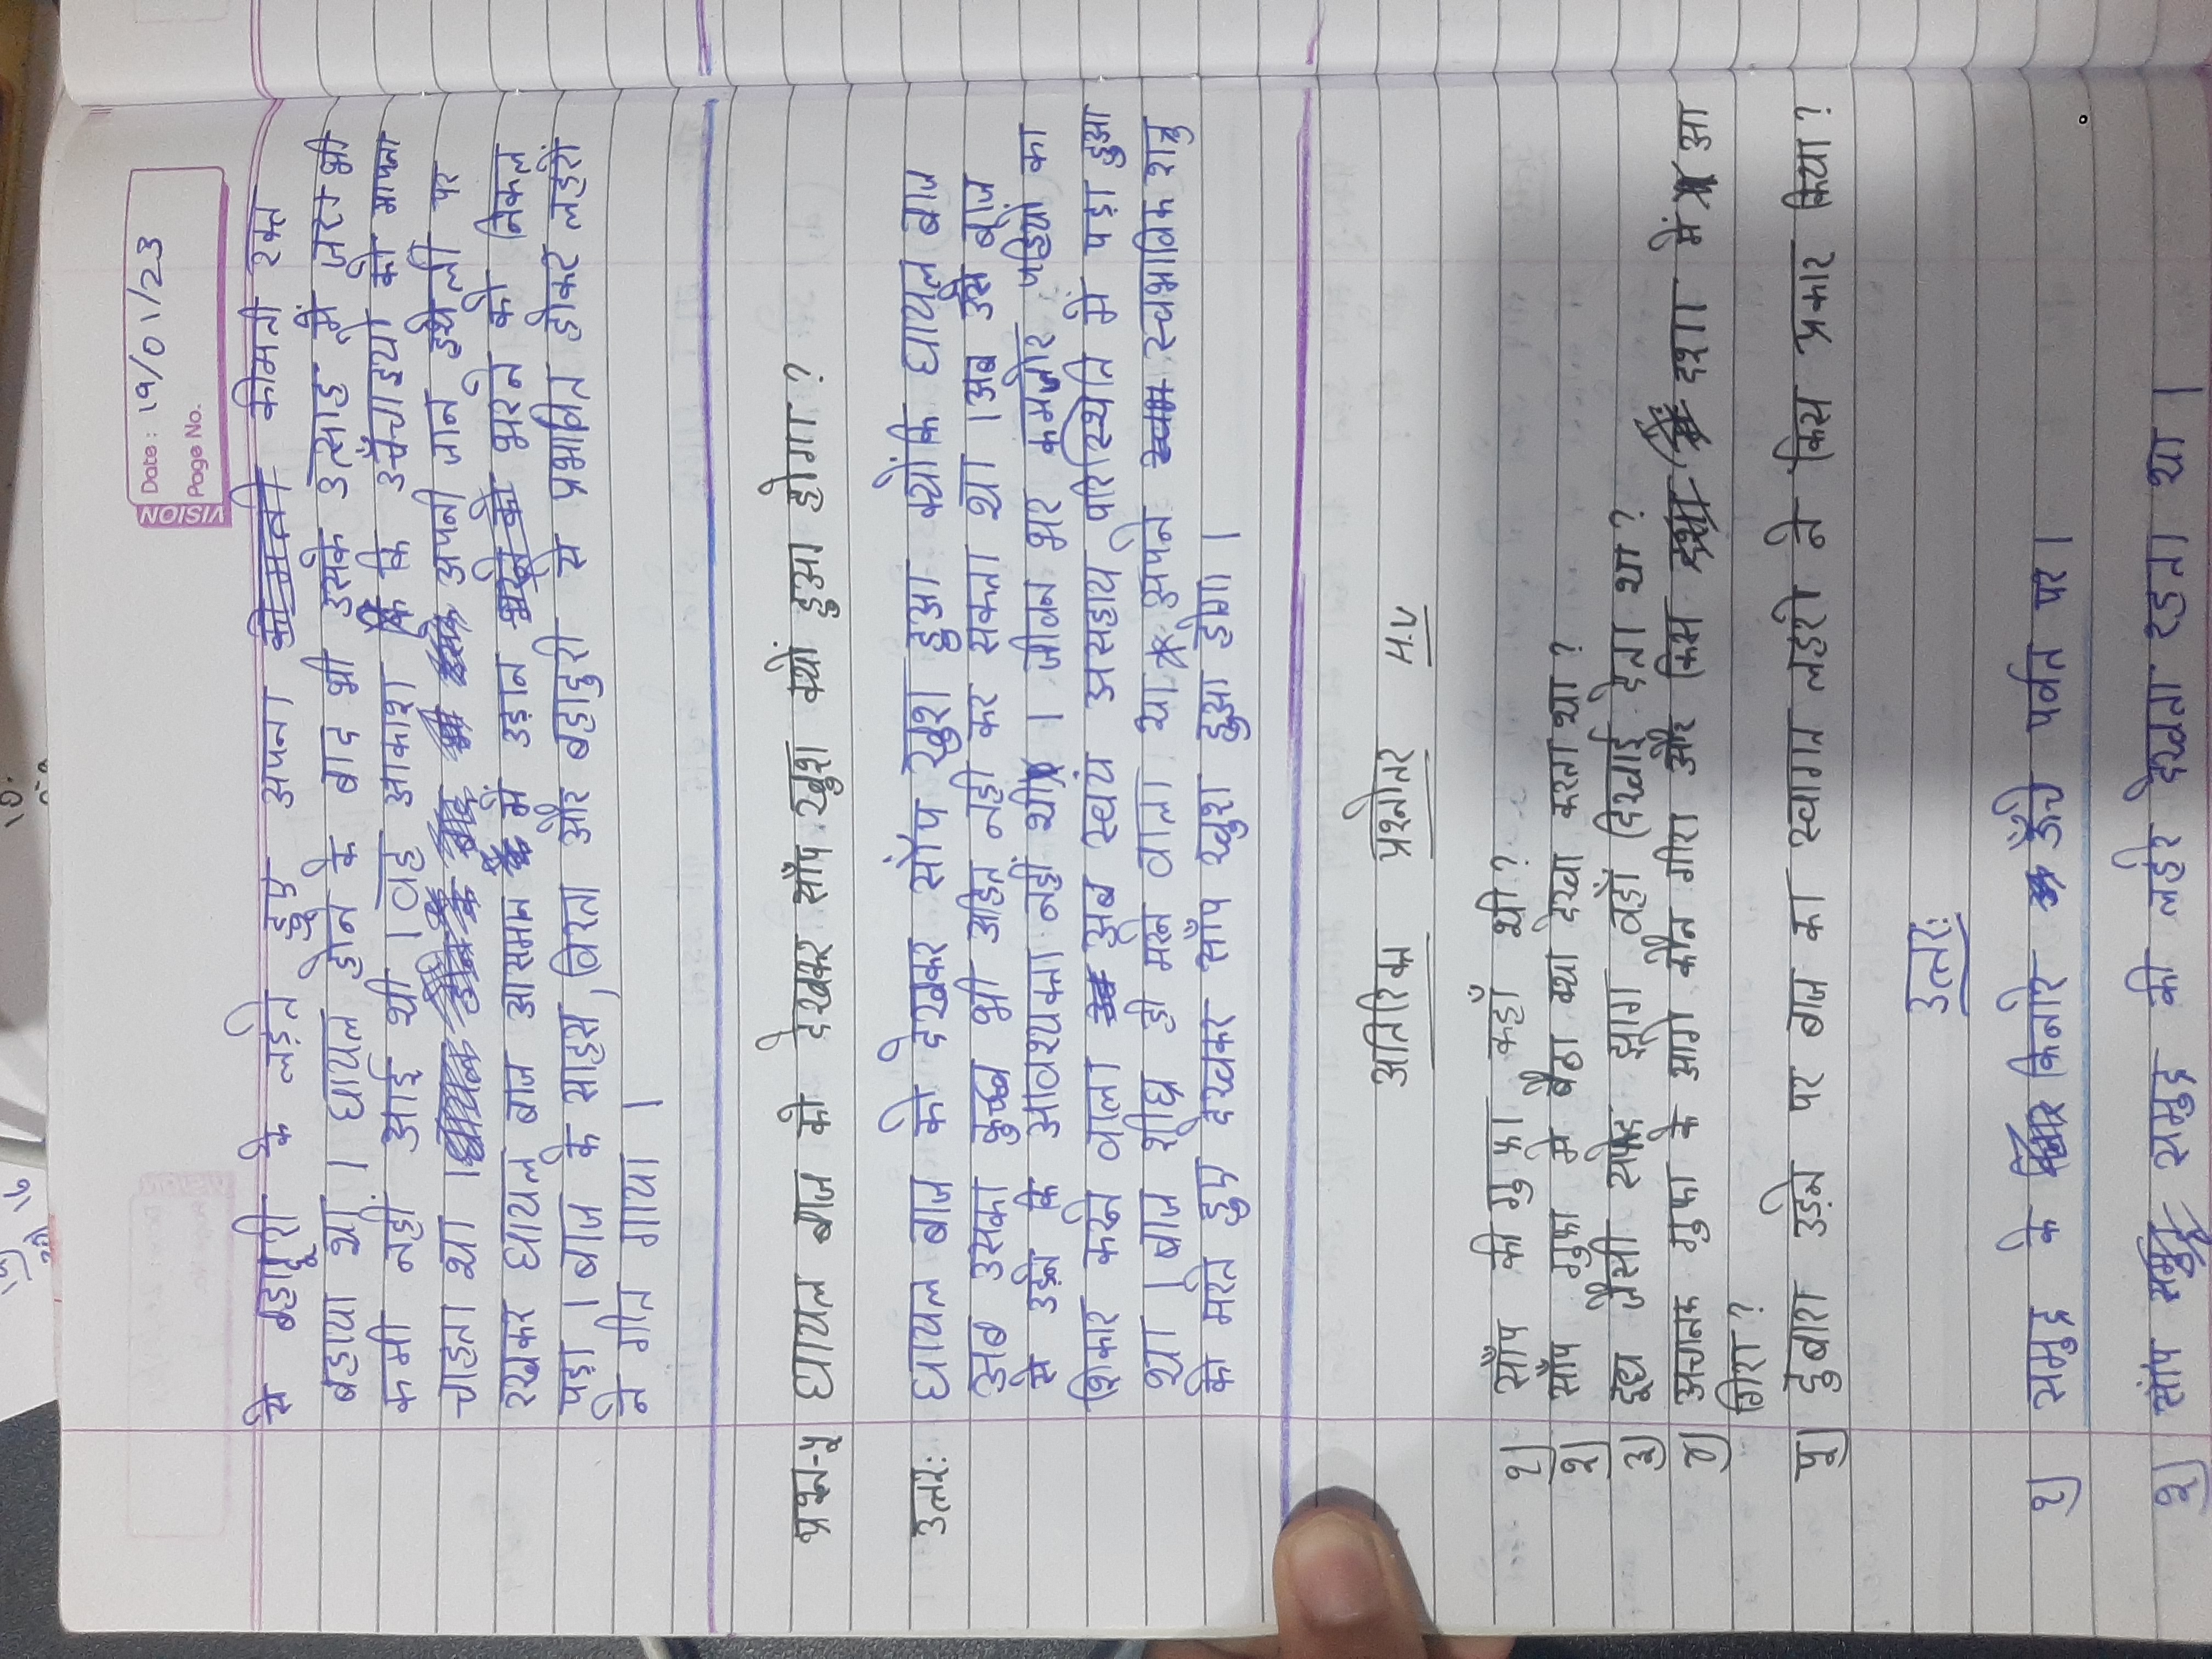 Date: 19/01/23
VISION
Page No.
से बहादूरी के लड़ते हुए अपना कीमती रक्त
बहाया था । घायल होने के बाद भी उसके उत्साह में जरा भी
कमी नहीं आई थी । वह आकाश कि उचँचाइयों को मापना
चाहता था । अपनी जान हथेली पर
रखकर घायल बाज आसमान में उड़ान भरने को निकल
पड़ा । बाज के साहस, विरता और बहादुरी से प्रभावित होकर लहरों
ने गीत गाया ।
प्रश्न-५ घायल बाज को देखकर साँप खुश क्यों हुआ होगा ?
उत्तर: घायल बाज को देखकर साँप खुश हुआ क्योंकि घायल बाज
अब उसका कुच्छ भी अहित नही कर सकता था । अब उसे बाज
से उड़ने कि आवश्यक्ता नहीं थी । जीवन भर कमजोर पक्षियों का
शिकार करने वाला अब स्वयं असहाय परिस्थिति में पड़ा हुआ
था । बाज शीघ्र ही मरने वाला था अपने स्वभाविक शत्रु
को मरते हुए देखकर साँप खुश हुआ होगा ।
अतिरिक्त प्रश्नोतर H.W
१) साँप की गुफा कहाँ थी ?
२) साँप गुफा मे बैठा क्या देखा करता था ?
३) दूध जैसी सफेद झाग वहाँ दिखाई देता था ?
४) अचानक गुफा के आगे कौन गीरा और किस दशा में आ
गिरा ?
५) दुबारा उड़ने पर बाज का स्वागत लहरो ने किस प्रकार किया ?
उत्तर:
१) समुद्र के किनारे ऊँचे पर्वत पर ।
२) साँप समुद्र की लहरे देखता रहता था ।